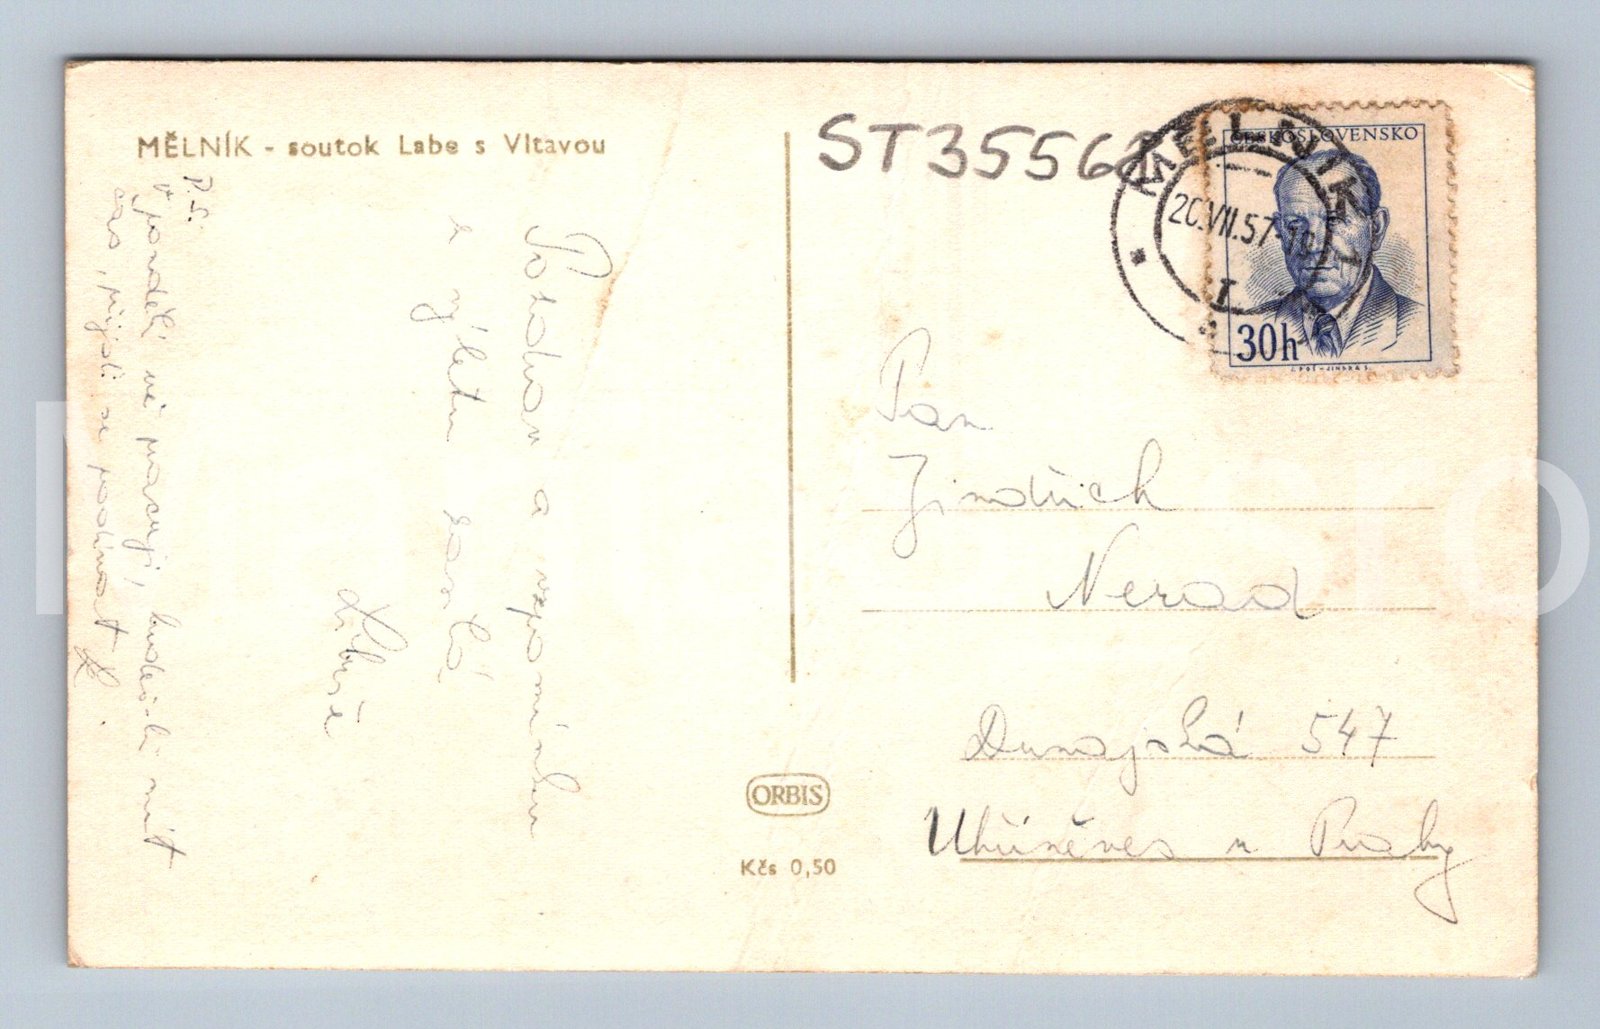 MĚLNÍK - soutok Labe s Vltavou
ST3556
MĚLNÍK 1
20.VII.57-10
ČESKOSLOVENSKO
30h
Pozdrav a vzpomínku
z výletu zasílá
Libuše
P.S.
V pondělí né pracuji, budeš-li mít
čas, přijdi se podívat L.
Pan
Jindřich
Nerad
Dunajská 547
Uhříněves u Prahy
ORBIS
Kčs 0,50